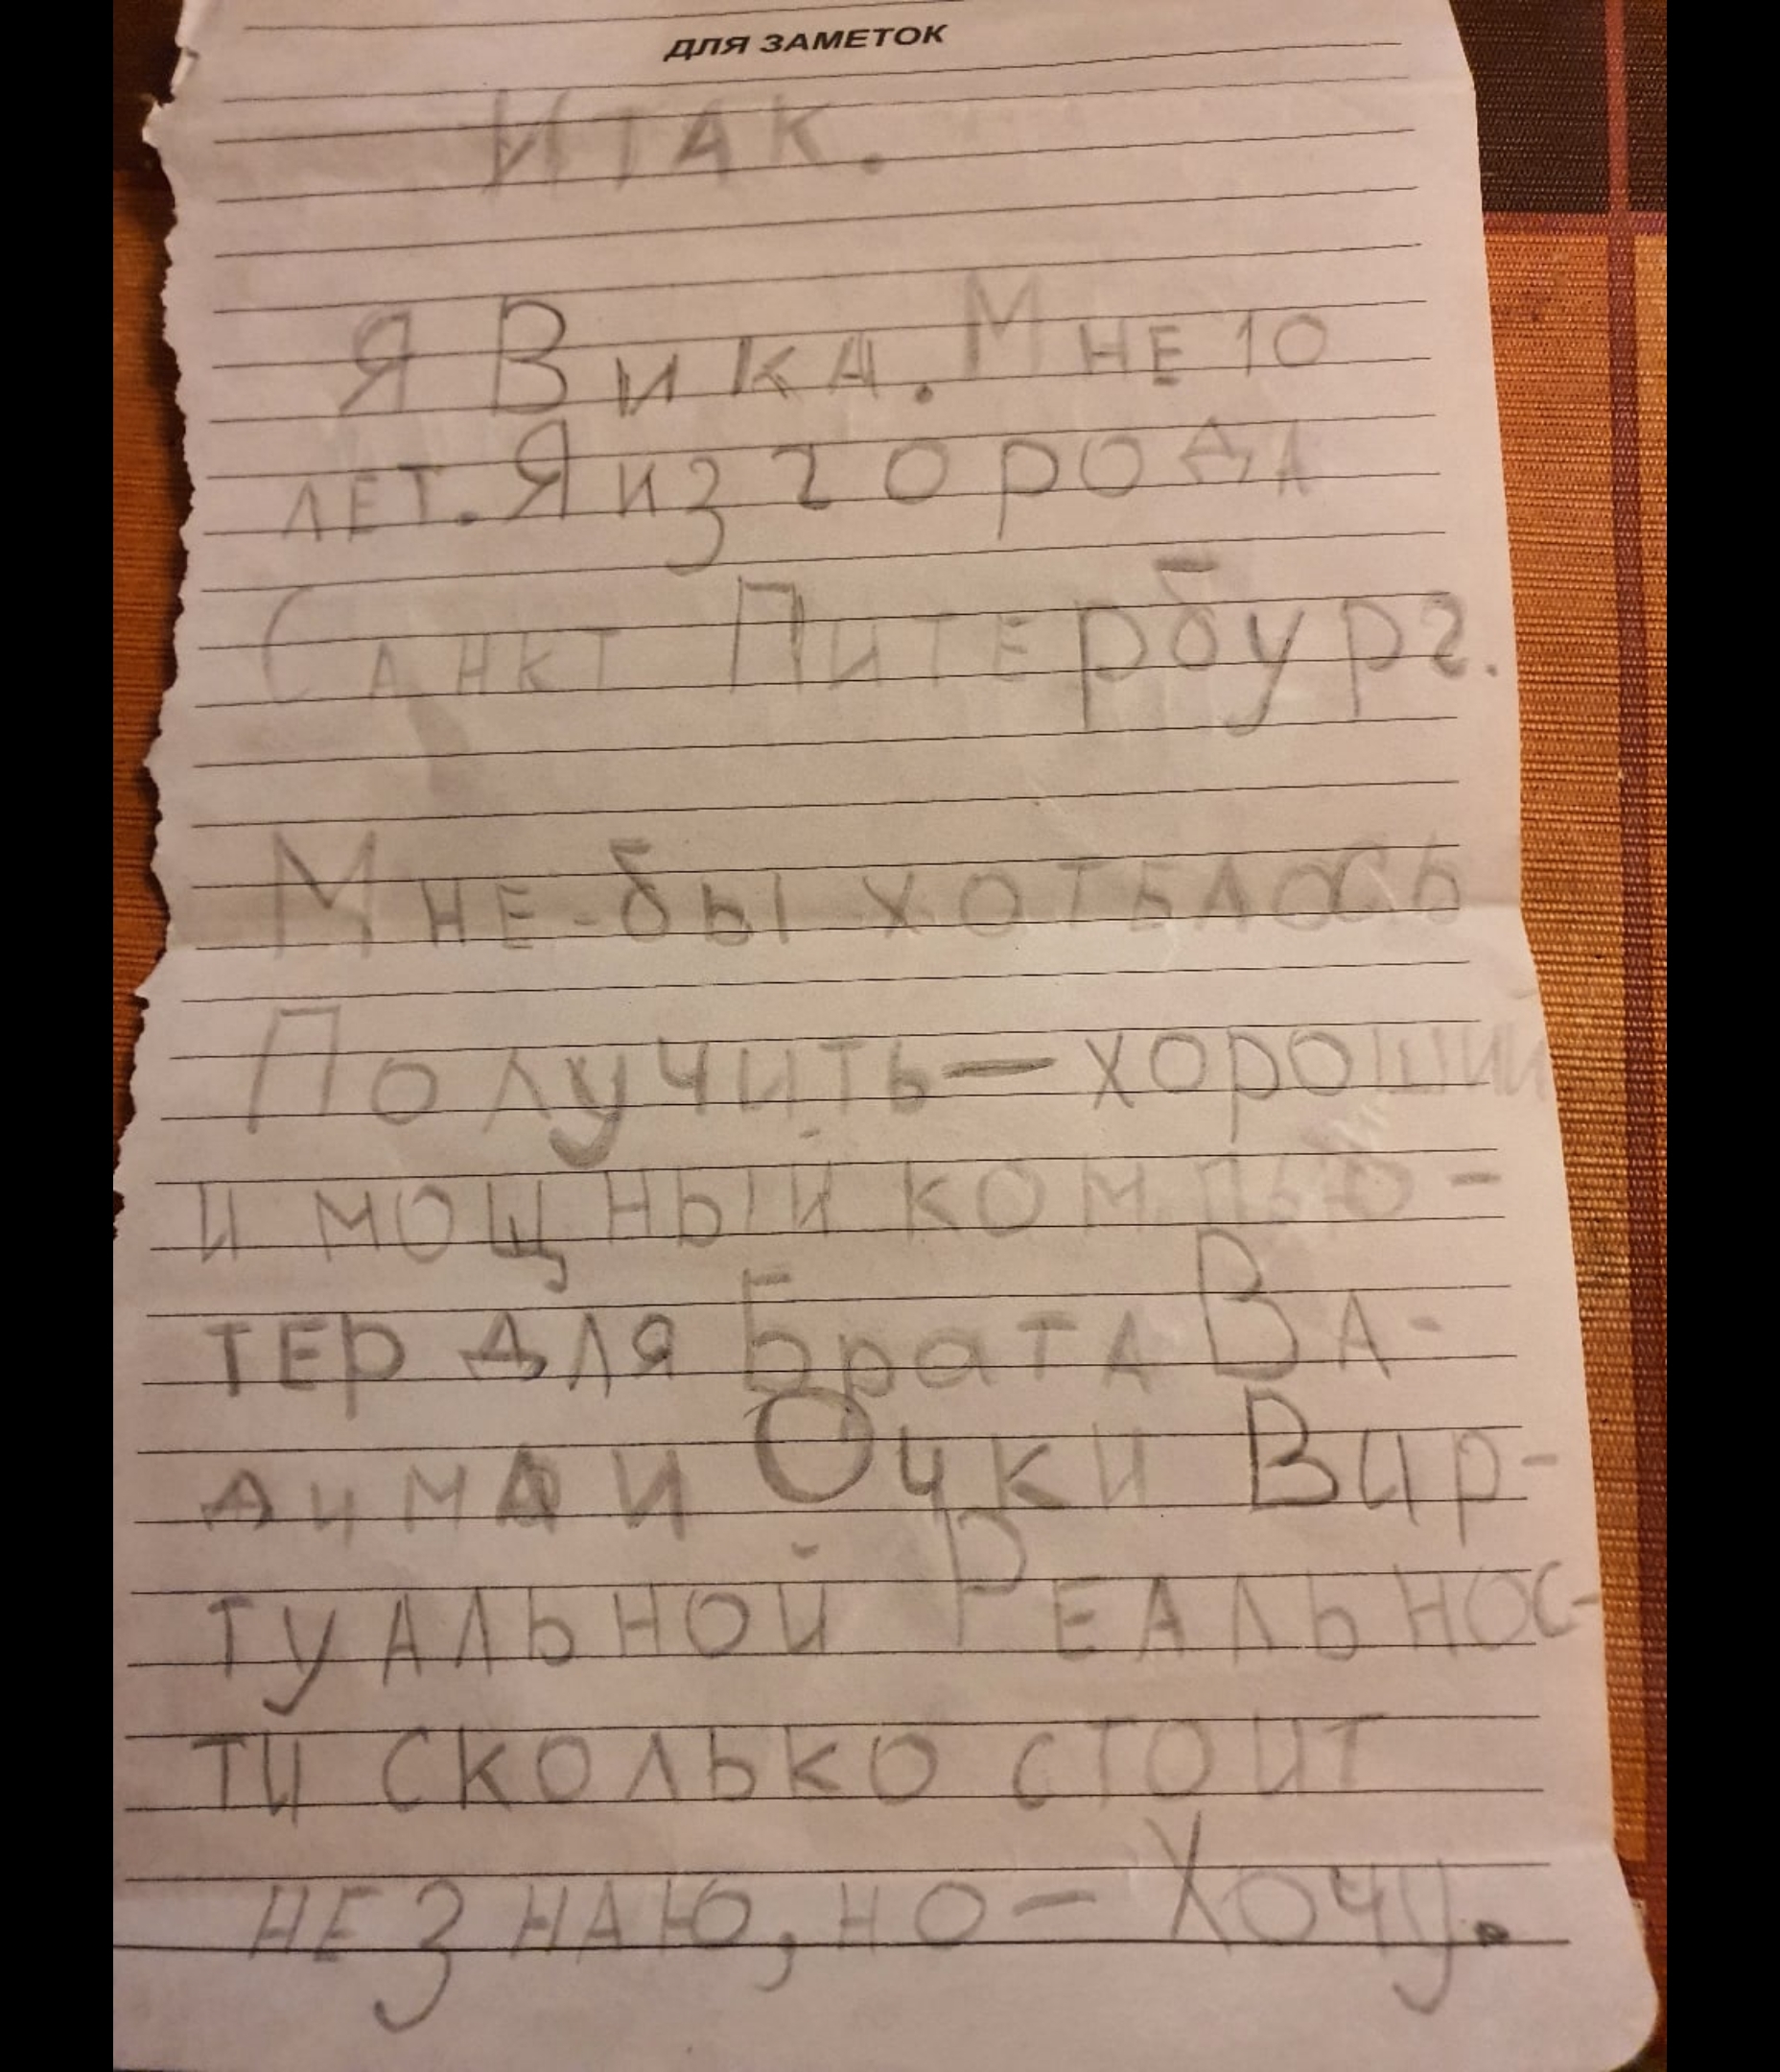 ДЛЯ ЗАМЕТОК
Итак.
Я Вика. Мне 10
лет. Я из города
Санкт Питербург.
Мне-бы хотелось
Получить — хороший
и мощный компью-
тер для Брата Ва-
дима и Очки Вир-
туальной Реальнос-
ти сколько стоит
не знаю, но — Хочу.